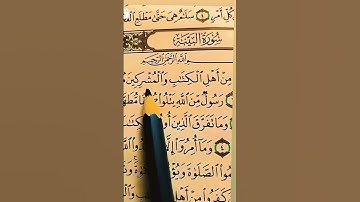 كُلِّ أَمْرٍ ٤ سَلَٰمٌ هِيَ حَتَّىٰ مَطْلَعِ
سُورَةُ الْبَيِّنَةِ
بِسْمِ اللَّهِ الرَّحْمَٰنِ الرَّحِيمِ
مِنْ أَهْلِ ٱلْكِتَٰبِ وَٱلْمُشْرِكِينَ
رَسُولٌ مِّنَ ٱللَّهِ يَتْلُوا۟
وَمَا تَفَرَّقَ ٱلَّذِينَ
وَمَآ أُمِرُوٓا۟ إِلَّا
ٱلصَّلَوٰةَ
كَفَرُوا۟ مِنْ